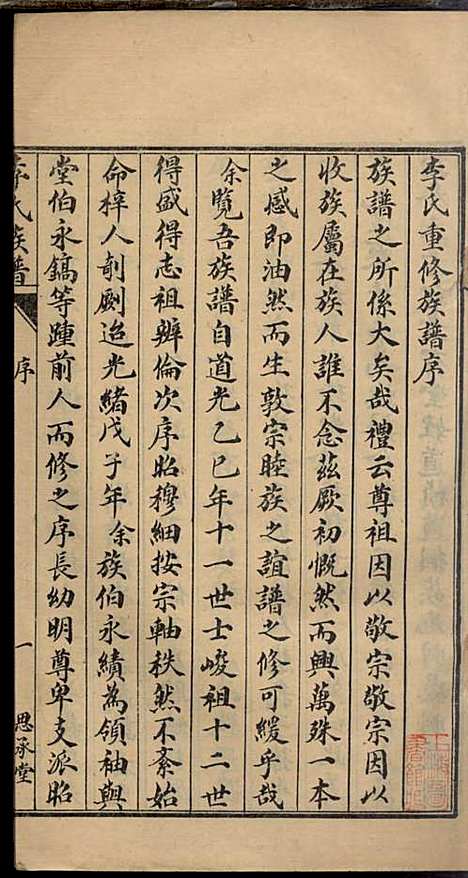 李氏重修族譜序
族譜之所係大矣哉禮云尊祖因以敬宗敬宗因以
收族屬在族人誰不念茲厥初慨然而興萬殊一本
之感即油然而生敦宗睦族之誼譜之修可緩乎哉
余覽吾族譜自道光乙巳年十一世士峻祖十二世
得盛得志祖辨倫次序昭穆細按宗軸秩然不紊始
命梓人剞劂迨光緒戊子年余族伯永績為領袖與
堂伯永鎬等踵前人而修之序長幼明尊卑支派昭
李氏族譜 序 一 思承堂